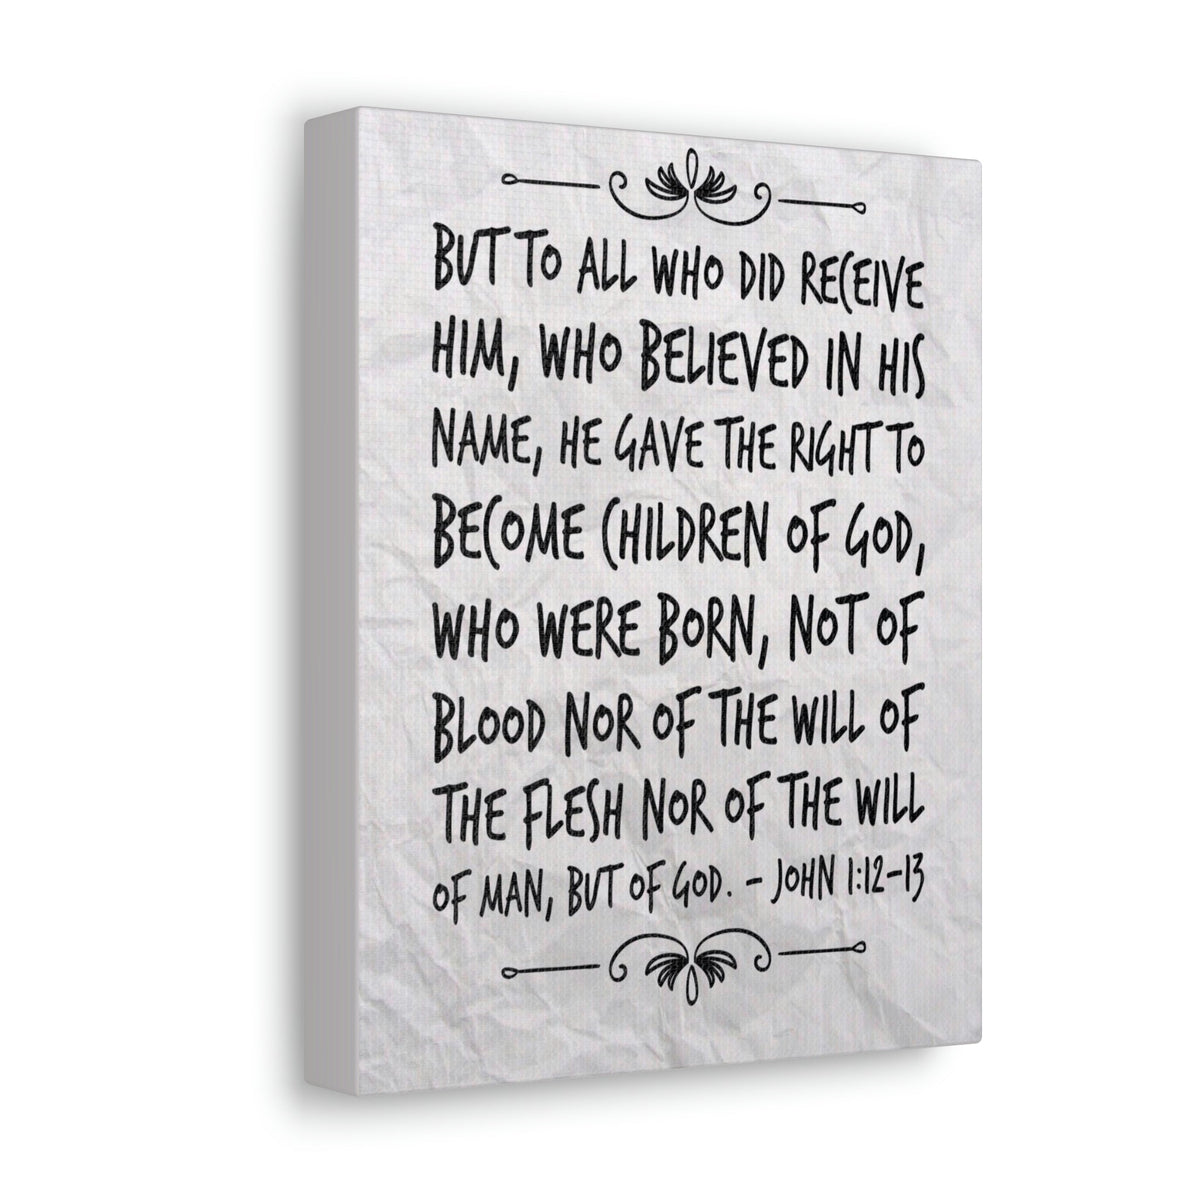 BUT TO ALL WHO DID RECEIVE
HIM, WHO BELIEVED IN HIS
NAME, HE GAVE THE RIGHT TO
BECOME CHILDREN OF GOD,
WHO WERE BORN, NOT OF
BLOOD NOR OF THE WILL OF
THE FLESH NOR OF THE WILL
OF MAN, BUT OF GOD. - JOHN 1:12-13